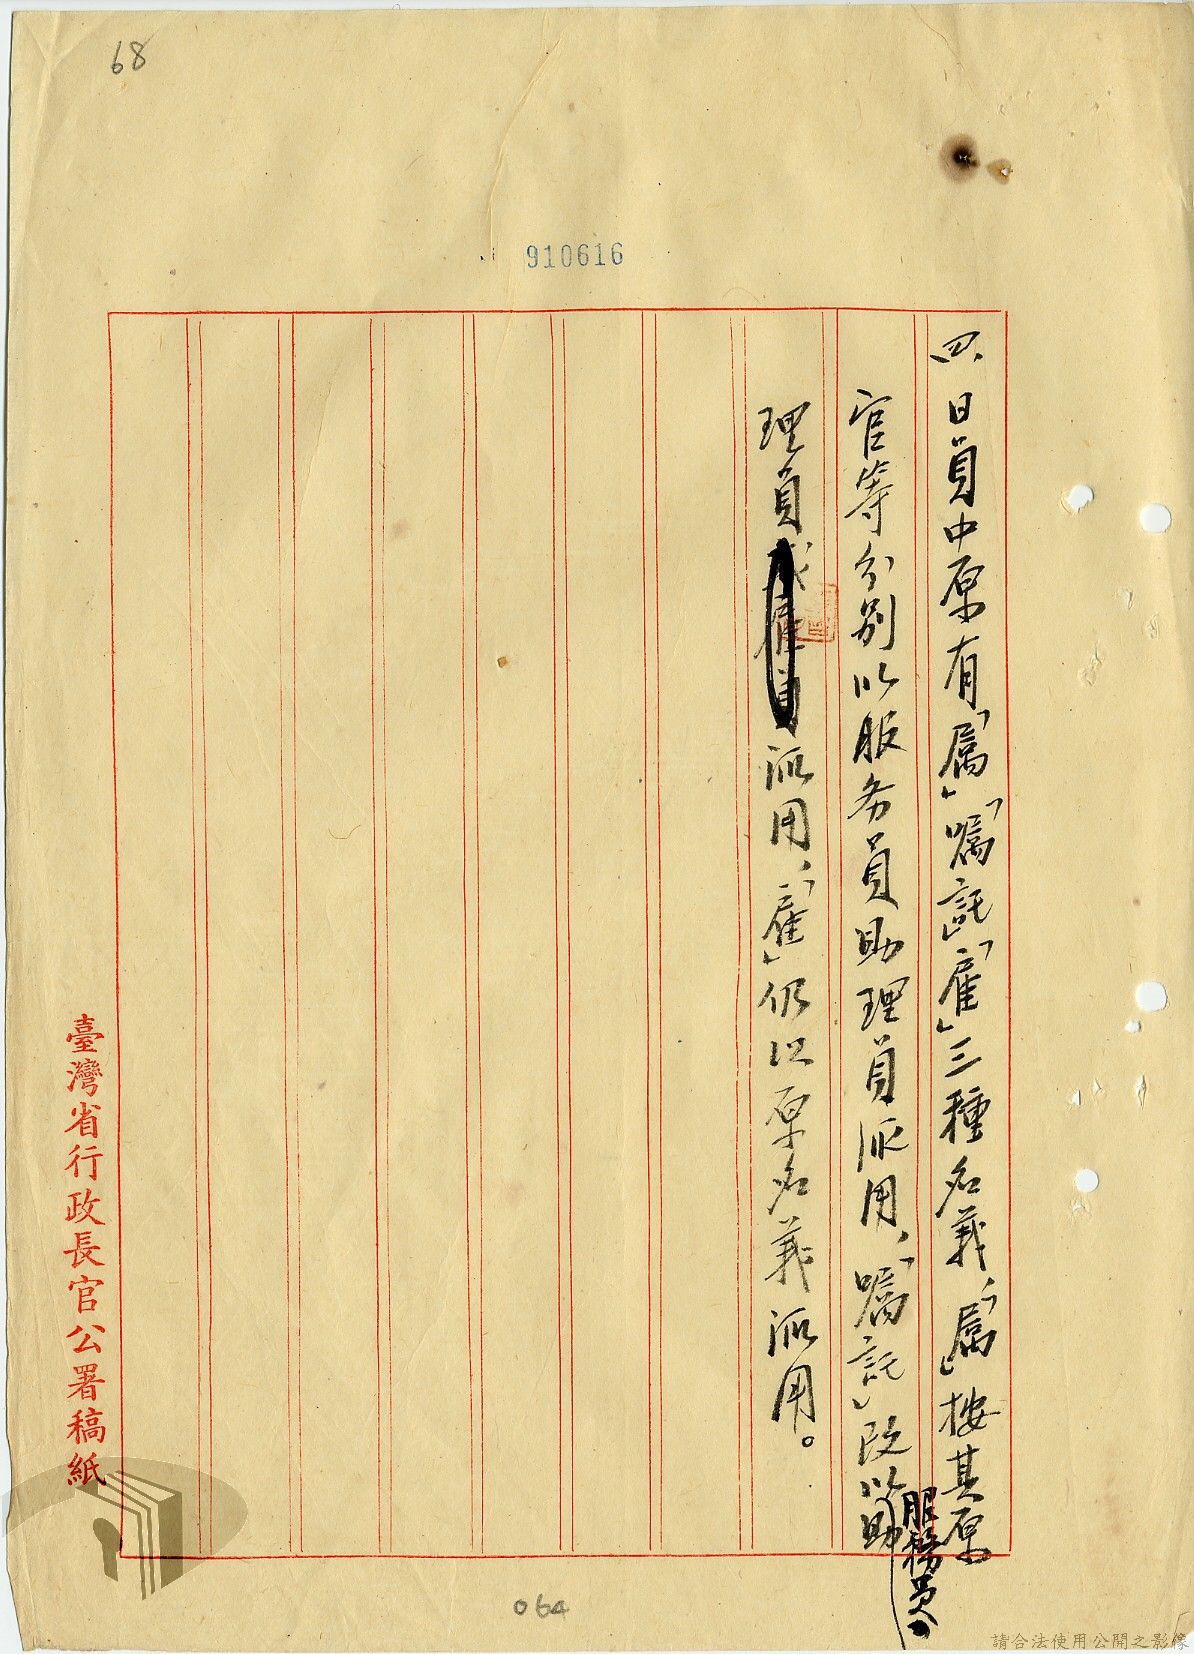 68
910616
四、日員中原有「属」「嘱託」「雇」三種名義，「属」按其原
官等分別以服务員助理員派用，「嘱託」改以服務員、助
理員派用，「雇」仍以原名義派用。
臺灣省行政長官公署稿紙
064
請合法使用公開之影像